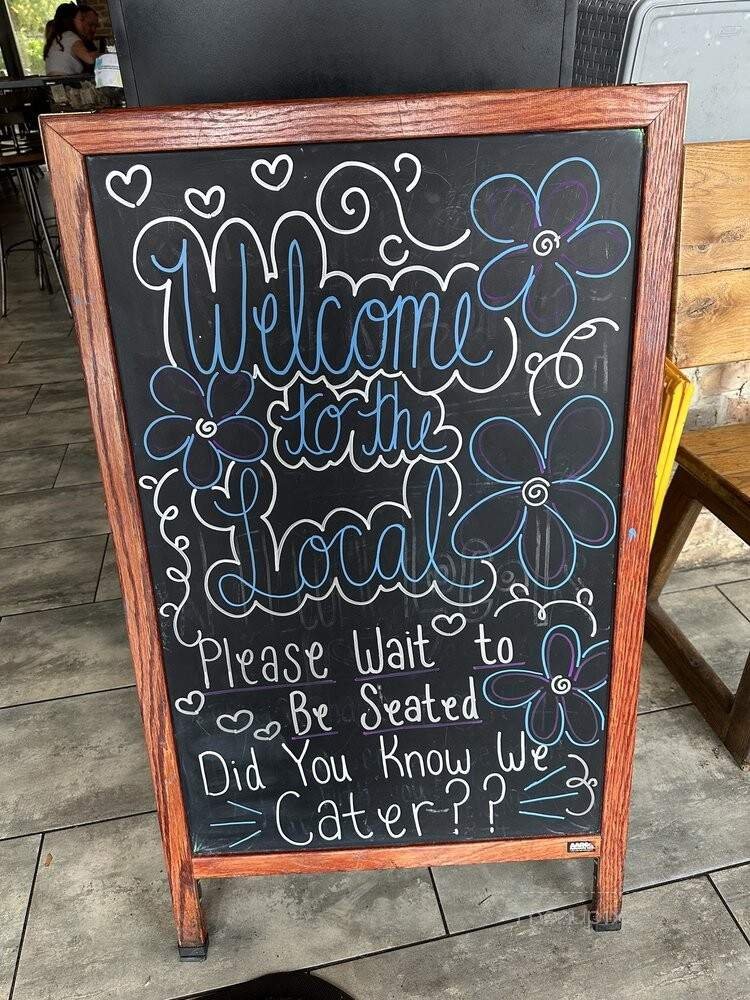 Welcome
to the
Local
Please Wait to
Be Seated
Did You Know We
Cater??